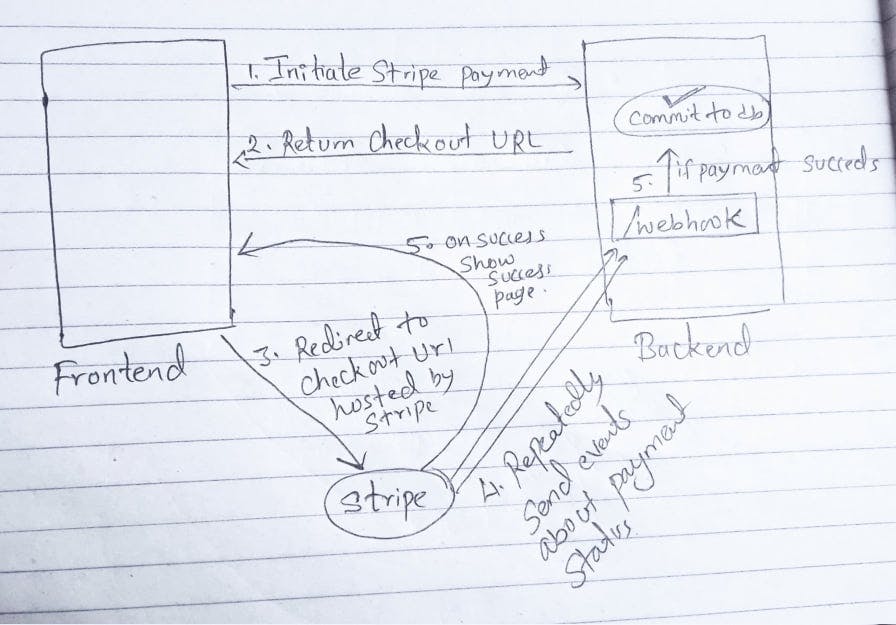 1. Initiate Stripe payment
2. Return Checkout URL
commit to db
5. if payment succeds
/webhook
5. on success
show
success
page.
3. Redirect to
checkout url
hosted by
stripe
Frontend
Backend
stripe
4. Repeatedly
send events
about payment
status